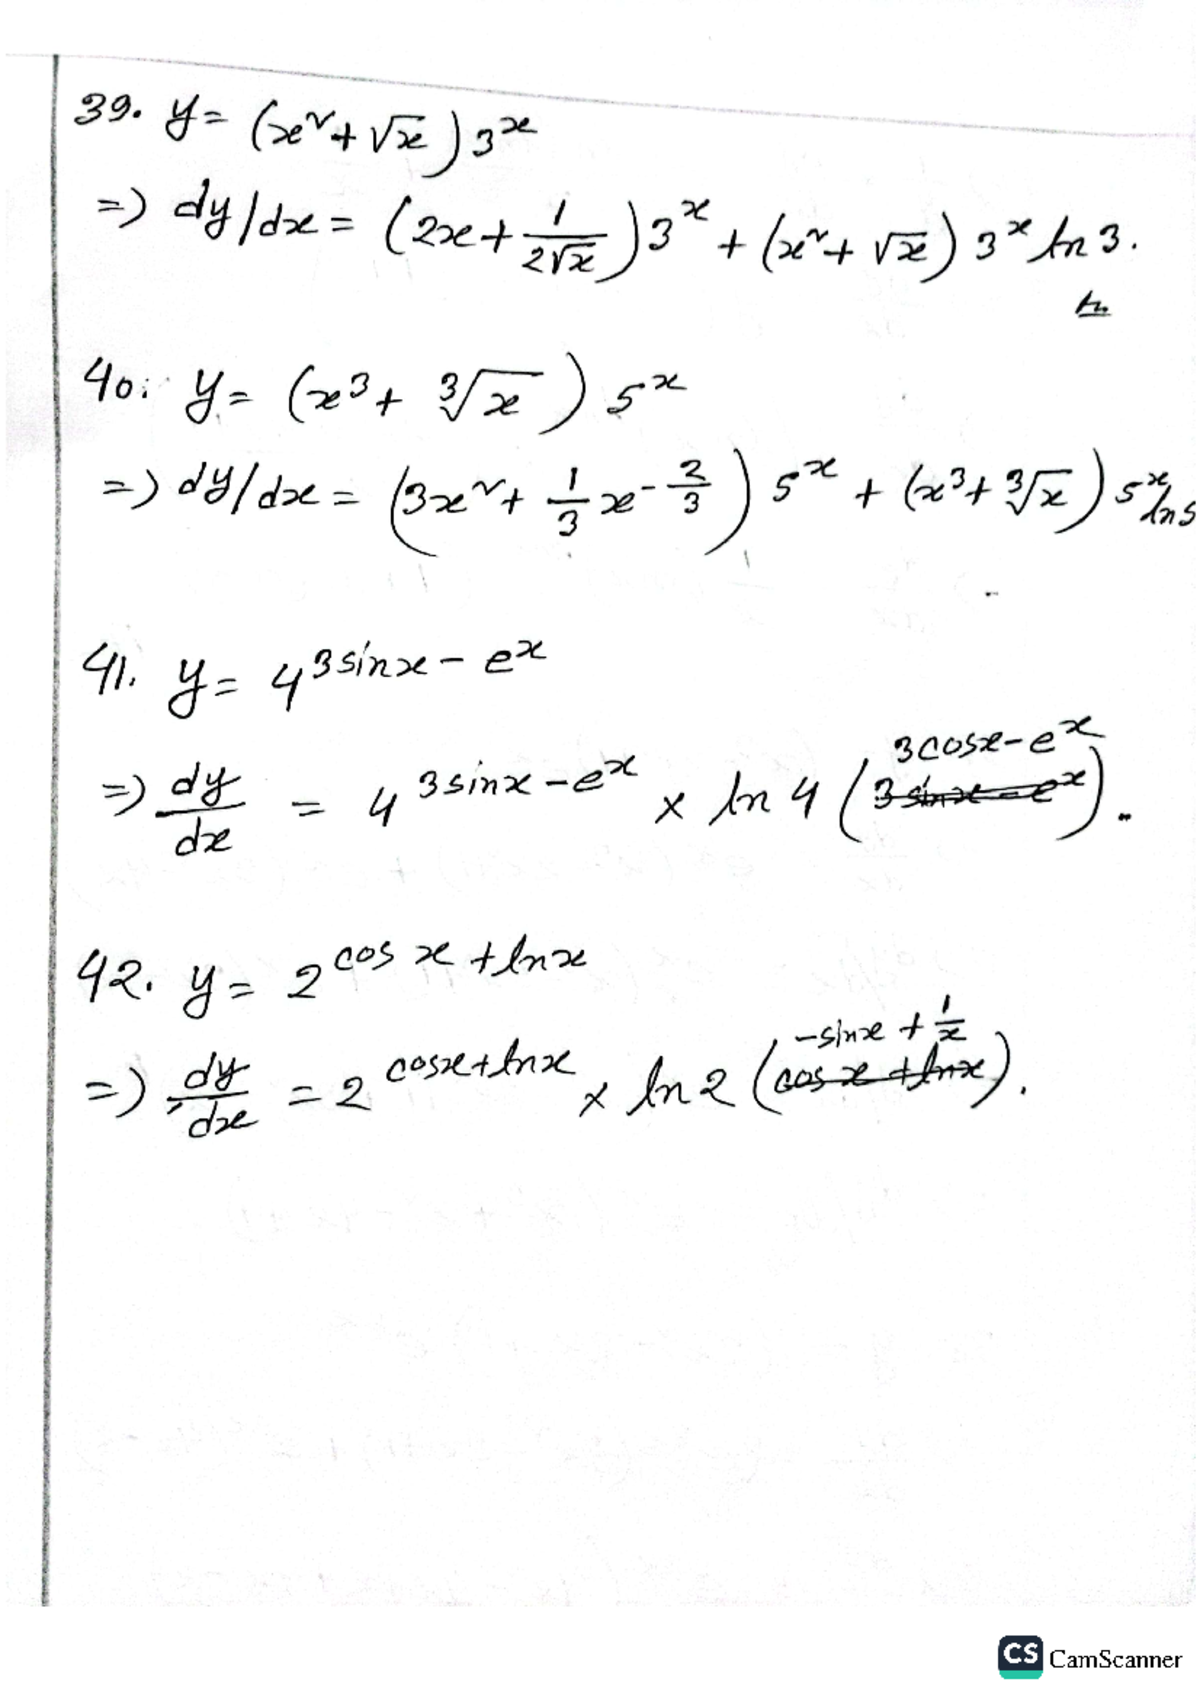 39. y = (x² + √x) 3^x
=) dy/dx = (2x + 1/(2√x)) 3^x + (x² + √x) 3^x ln 3.
40. y = (x³ + ∛x) 5^x
=) dy/dx = (3x² + 1/3 x^(-2/3)) 5^x + (x³ + ∛x) 5^x ln 5
41. y = 4^(3sinx - e^x)
3cosx - e^x
=) dy/dx = 4^(3sinx - e^x) × ln 4 (3 sinx - e^x).
42. y = 2^(cos x + ln x)
-sinx + 1/x
=) dy/dx = 2^(cosx + lnx) × ln 2 (cos x + lnx).
CS CamScanner